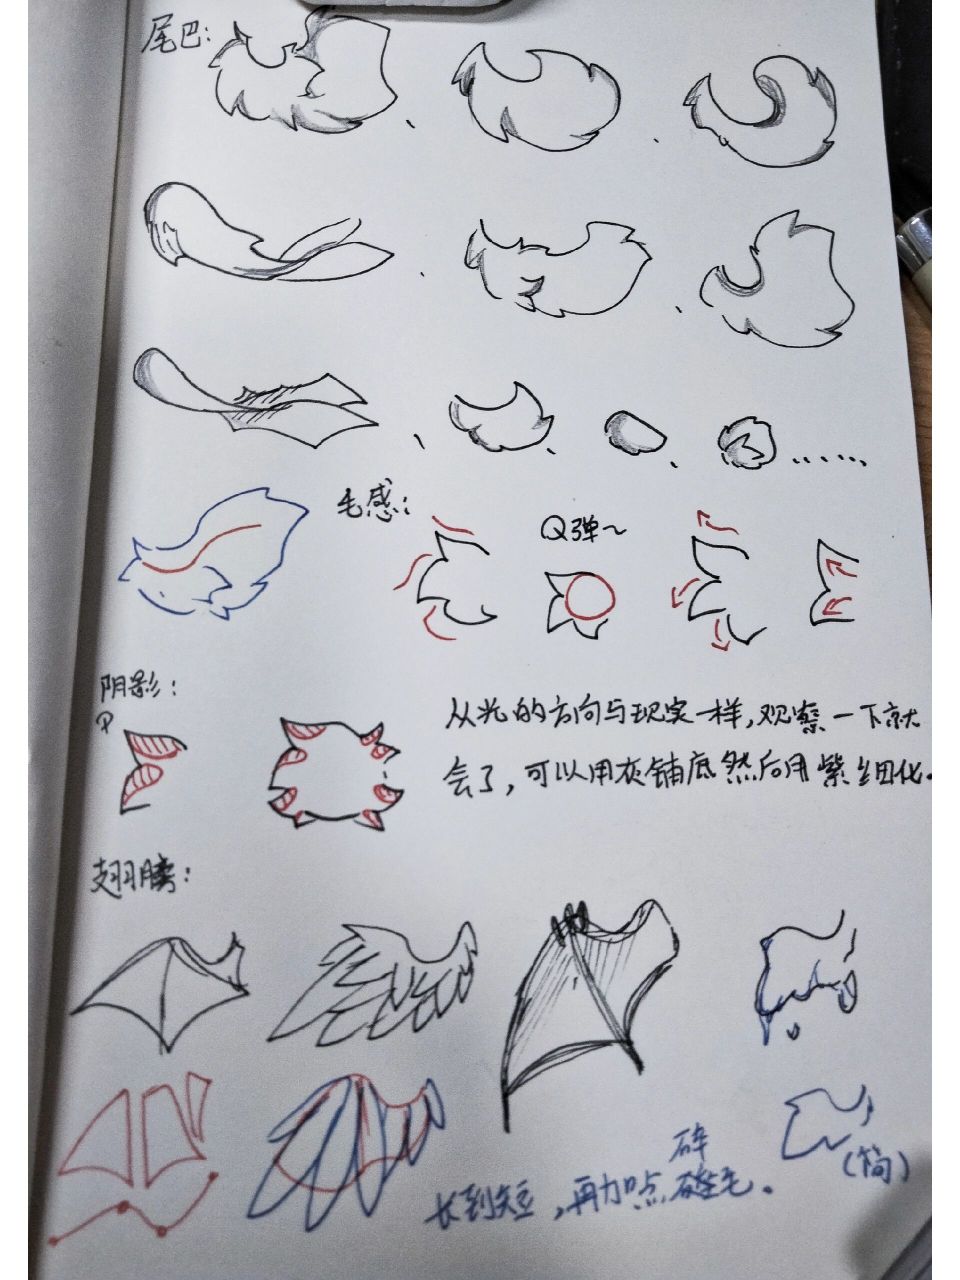 尾巴:
毛感:
Q弹~
阴影:
从光的方向与现实一样,观察一下就
会了,可以用灰铺底然后用紫细化。
翅膀:
(简)
碎
长到短,再加点碎毛。